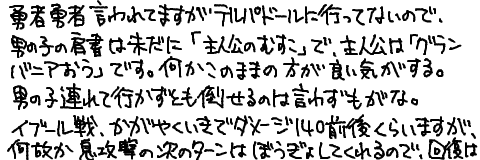 勇者勇者言われてますがテルパドールに行ってないので、
男の子の肩書は未だに「主人公のむすこ」で、主人公は「グラン
バニアおう」です。何かこのままの方が良い気がする。
男の子連れて行かずとも倒せるのは言わずもがな。
イブール戦、かがやくいきでダメージ140前後くらいますが、
何故か息攻撃の次のターンはぼうぎょしてくれるので、回復は